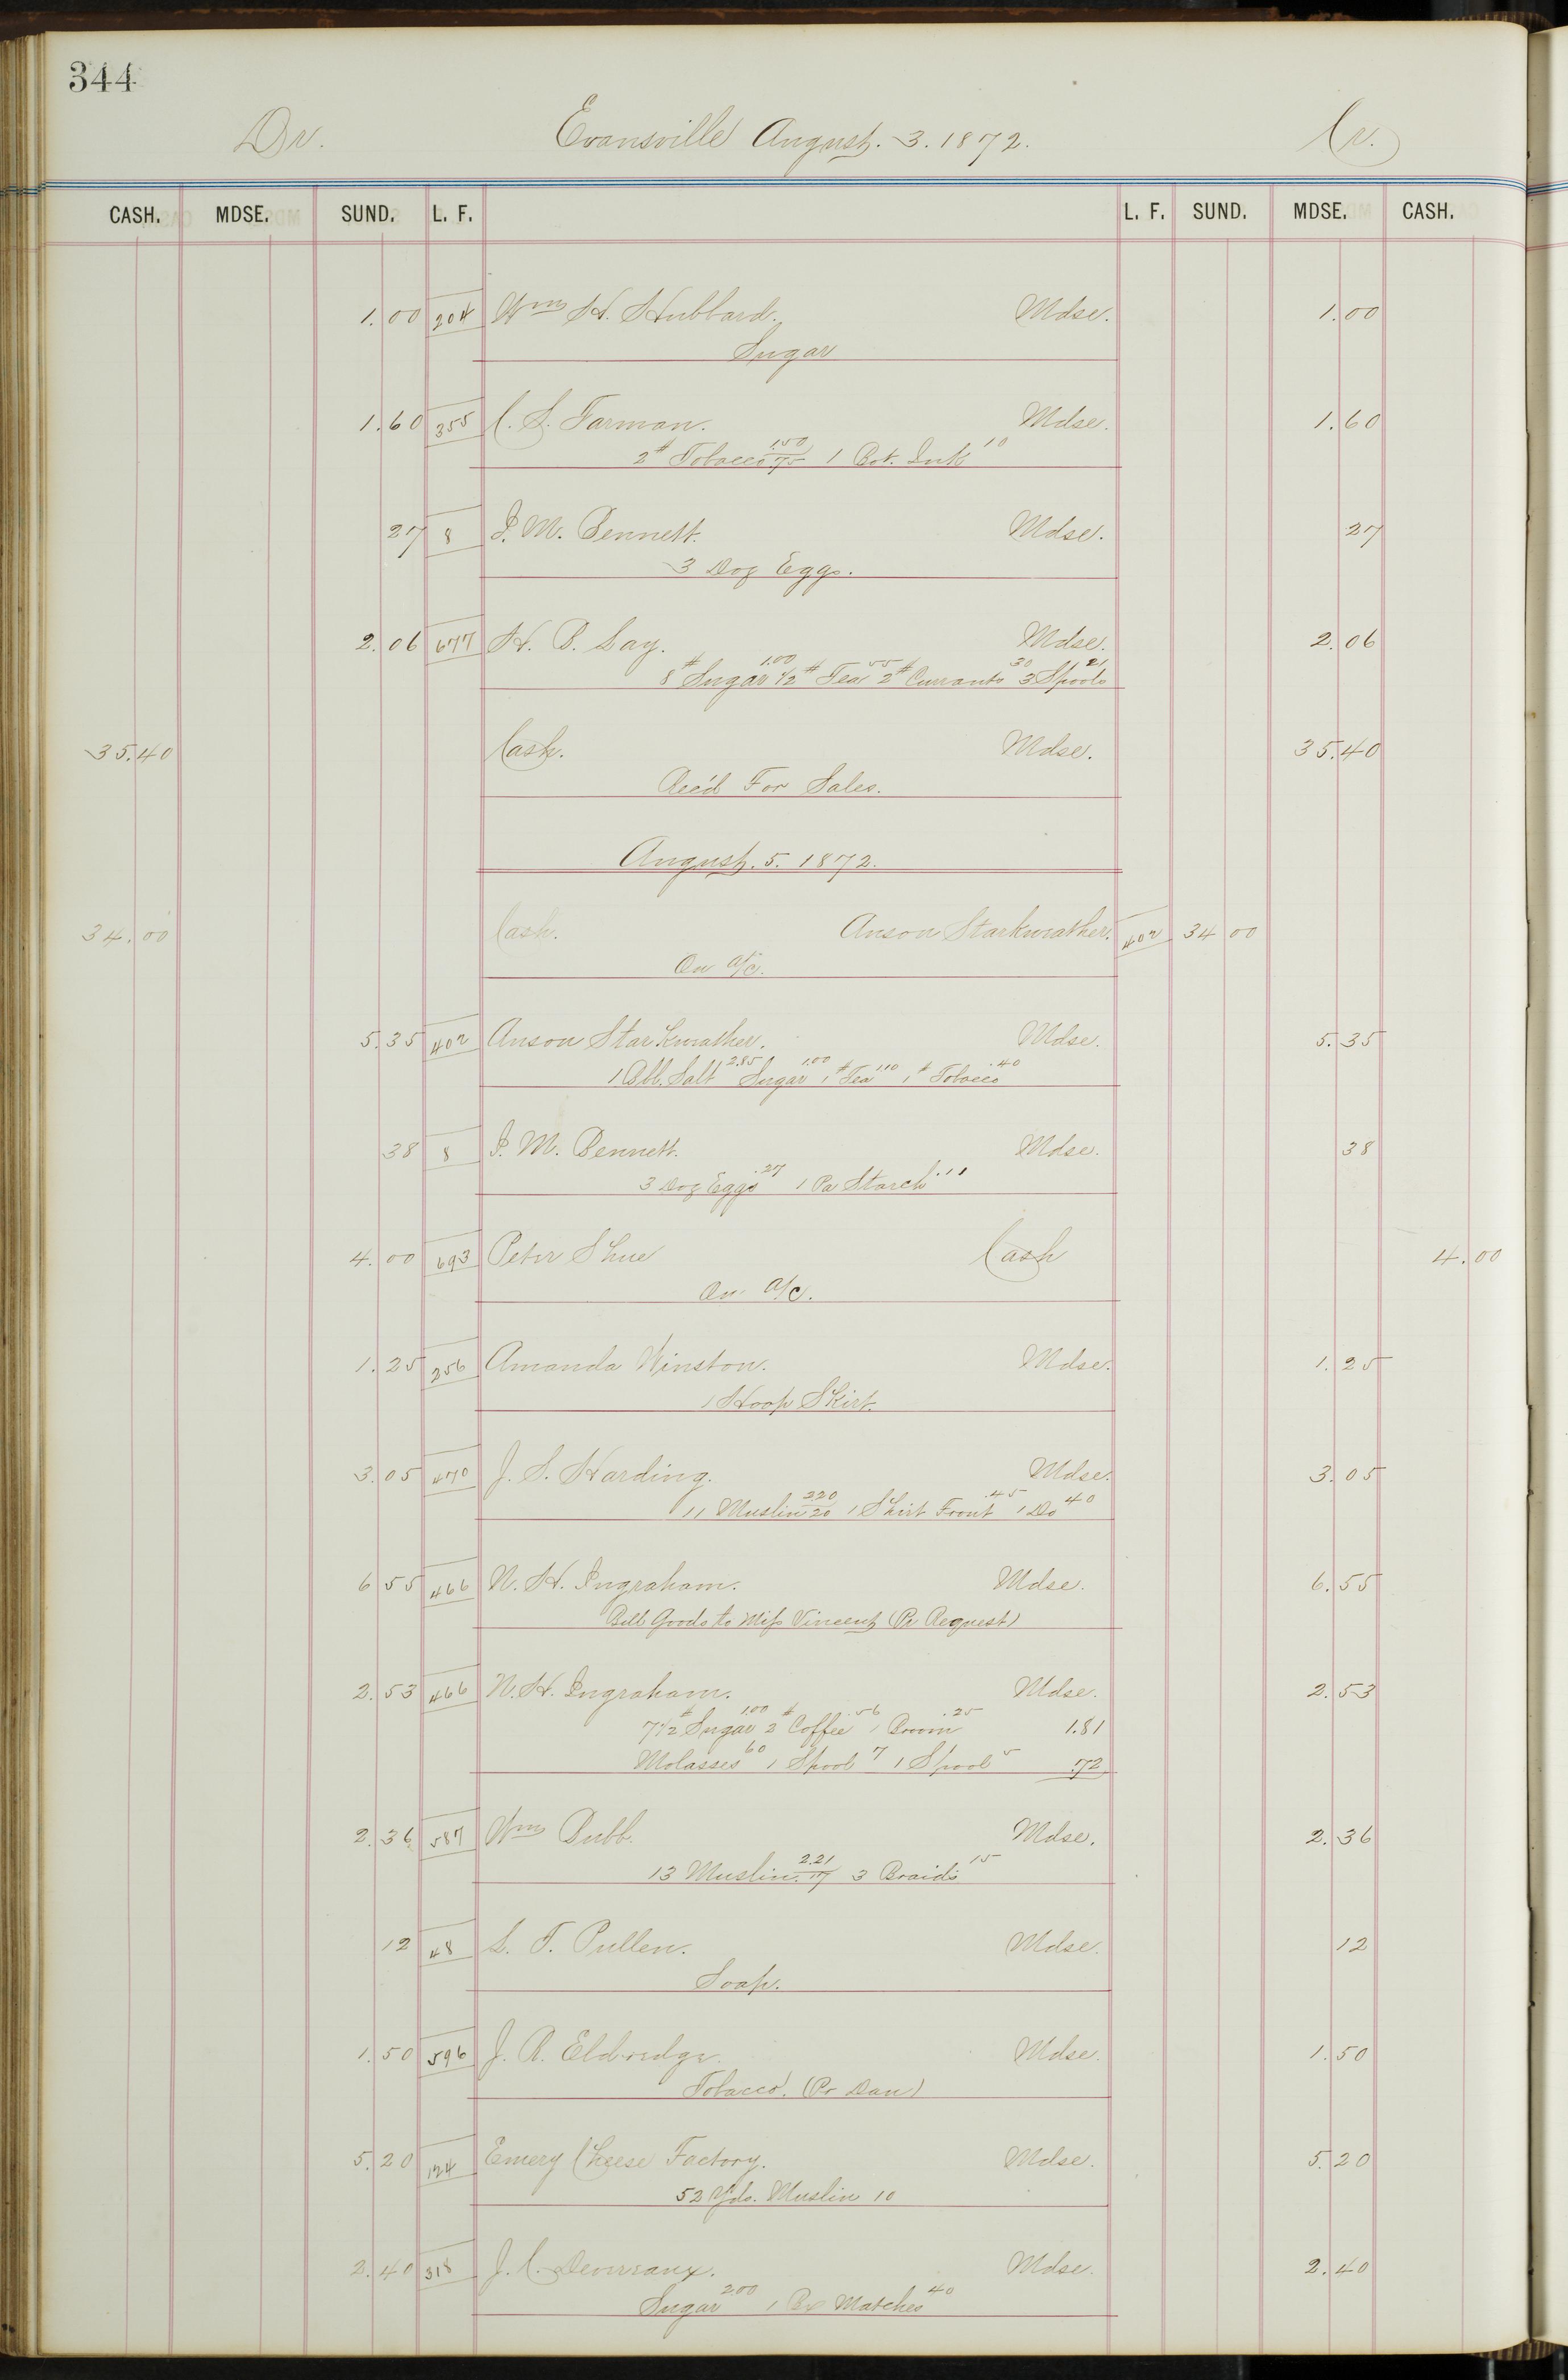 344
Dr. Evansville August. 3. 1872. Cr.
CASH. MDSE. SUND. L. F. L. F. SUND. MDSE. CASH.
1.00 204 Wm H. Hubbard. Mdse. 1.00
Sugar
1.60 355 C. S. Farman. Mdse. 1.60
2# Tobacco 1.50/75 1 Bot. Ink 10
27 8 I. M. Bennett. Mdse. 27
3 Doz Eggs.
2.06 677 H. B. Mdse. 2.06
8# Sugar 1.00 1/2# Tea 55 2# Currants 30 3 Spools 21
35.40 Cash. Mdse. 35.40
Rec'd For Sales.
August. 5. 1872.
34.00 Cash. Anson Starkwather. 402 34 00
On a/c.
5.35 402 Anson Starkwather. Mdse. 5.35
1 Bbl. Salt 2.85 Sugar 1.00 1# Tea 1.10 1# Tobacco .40
38 8 I. M. Bennett. Mdse. 38
3 Doz Eggs .27 1 Pa Starch .11
4.00 693 Peter Shue Cash 4.00
On a/c.
1.25 256 Amanda Winston. Mdse. 1.25
1 Hoop Skirt.
3.05 470 J. S. Harding. Mdse. 3.05
11 Muslin 2.20/20 1 Shirt Front .45 1 Do 40
6 55 466 N. H. Ingraham. Mdse. 6.55
Bill Goods to Miss Vincent (Pr Request)
2.53 466 N. H. Ingraham. Mdse. 2.53
7 1/2# Sugar 1.00 2# Coffee .56 1 Broom .25 1.81
Molasses 60 1 Spool 7 1 Spool 5 .72
2.36 587 Wm Bubb. Mdse. 2.36
13 Muslin. 2.21/17 3 Braids 15
12 48 L. T. Pullen. Mdse. 12
Soap.
1.50 596 J. R. Eldredge. Mdse. 1.50
Tobacco. (Pr Dan)
5.20 124 Emery Cheese Factory. Mdse. 5.20
52 Yds. Muslin 10
2.40 318 J. C. Mdse. 2.40
Sugar 2.00 1 Bx Matches 40